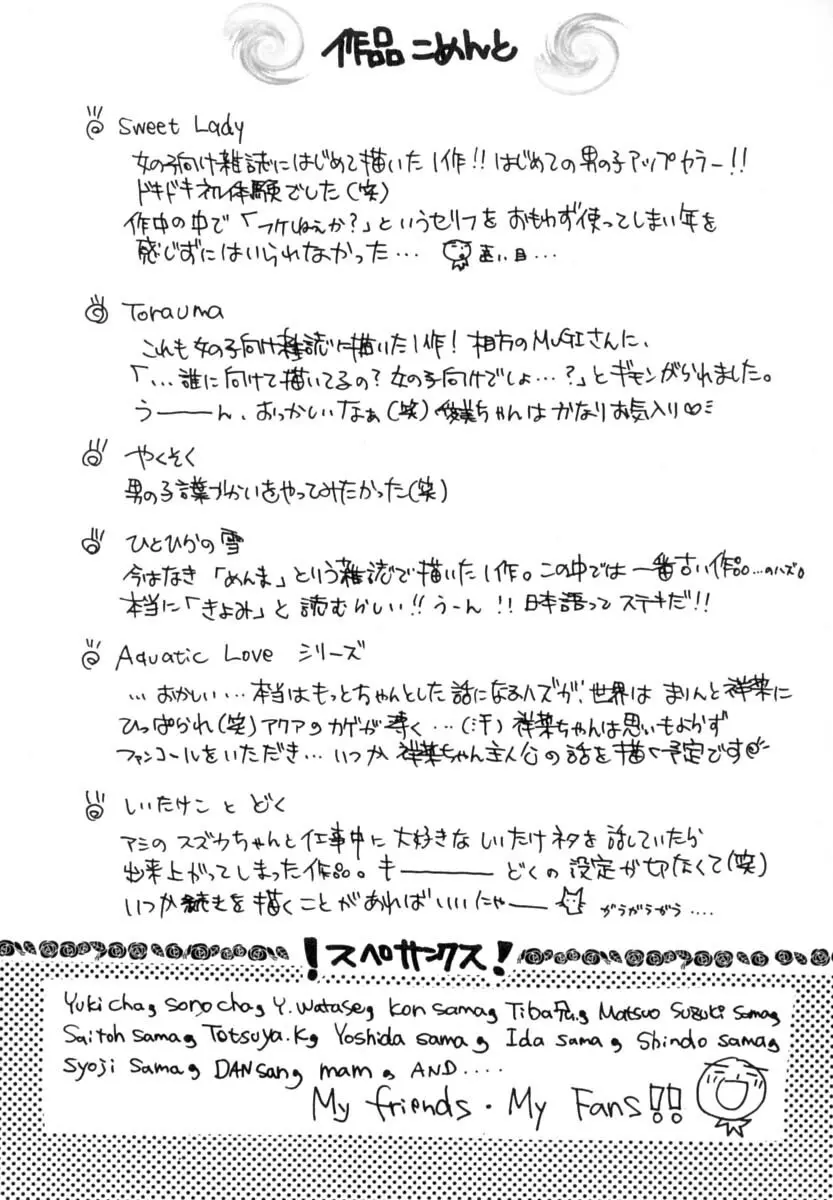 作品こめんと
Sweet Lady
女の子向け雑誌にはじめて描いた1作!! はじめての男の子アップカラー!!
ドキドキネル体験でした(笑)
作中の中で「フケねぇか?」というセリフをおもわず使ってしまい年を
感じずにはいられなかった… 遠い目…
Torauma
これも女の子向け雑誌に描いた1作! 相方のMUGIさんに、
「…誰に向けて描いてるの? 女の子向けでしょ…?」とギモンがられました。
うーーん、おっかしいなぁ(笑) ちゃんはかなりお気入り♡
やくそく
男の子言葉づかいをやってみたかった(笑)
ひとひらの雪
今はなき「めんま」という雑誌で描いた1作。この中では一番古い作品…のハズ。
本当に「きよみ」と読むらしい!! うーん!! 日本語ってステキだ!!
Aquatic Love シリーズ
…おかしい…本当はもっとちゃんとした話になるハズが、世界はまりんと祥菜に
ひっぱられ(笑)アクアのカゲが薄く…(汗)祥菜ちゃんは思いもよらず
ファンコールをいただき…いつか祥菜ちゃん主人公の話を描く予定です
しいたけことどく
アシのスズカちゃんと仕事中に大好きなしいたけネタを話していたら
出来上がってしまった作品。キーーーどくの設定が切なくて(笑)
いつか続きを描くことがあればいいにゃー がうがうがう….
!スペサンクス!
Yukicha, sonocha, Y.watase, kon sama, Tiba兄, Matsuo Suzuki sama,
Saitoh sama, Totsuya.K, Yoshida sama, Ida sama, Shindo sama,
Syoji sama, DANsan, mam, AND....
My friends・My Fans!!